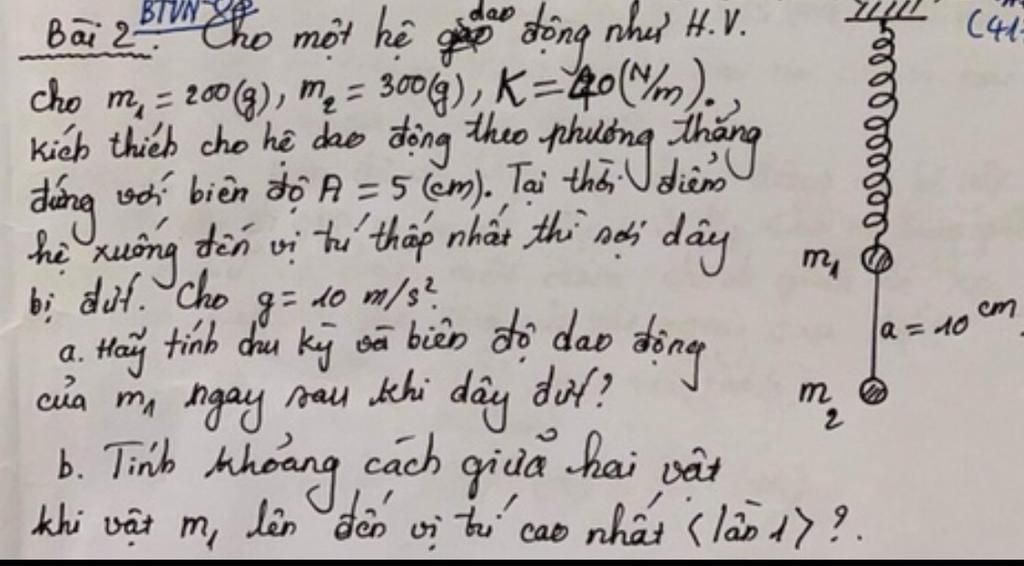 BTVN
(41
Bài 2: Cho một hệ dao động như H.V.
Cho m₁ = 200(g), m₂ = 300(g), K = 40(N/m).
kích thích cho hệ dao động theo phương thẳng
đứng với biên độ A = 5 (cm). Tại thời điểm
hệ xuống đến vị trí thấp nhất thì sợi dây
bị đứt. Cho g = 10 m/s².
a. Hãy tính chu kỳ và biên độ dao động
của m₁ ngay sau khi dây đứt?
b. Tính khoảng cách giữa hai vật
khi vật m₁ lên đến vị trí cao nhất (lần 1)?.
m₁
a = 10 cm
m₂